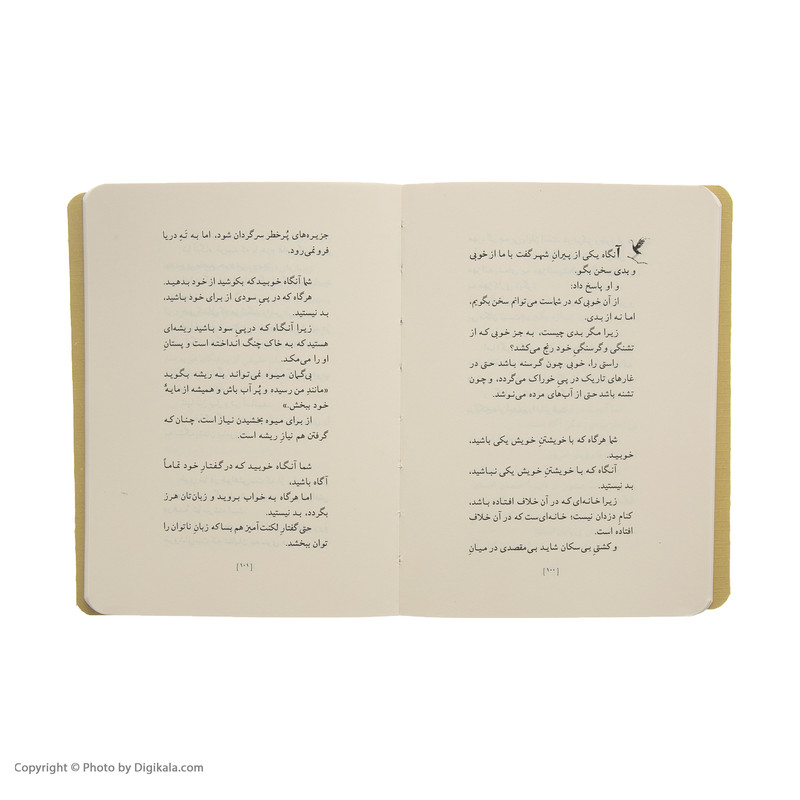 آنگاه یکی از پیرانِ شهر گفت با ما از خوبی
و بدی سخن بگو.
و او پاسخ داد:
از آن خوبی که در شماست می‌توانم سخن بگویم،
اما نه از بدی.
زیرا مگر بدی چیست، به جز خوبی که از
تشنگی و گرسنگیِ خود رنج می‌کشد؟
راستی را، خوبی چون گرسنه باشد حتی در
غارهای تاریک در پیِ خوراک می‌گردد، و چون
تشنه باشد حتی از آب‌های مرده می‌نوشد.
شما هرگاه که با خویشتنِ خویش یکی باشید،
خوبید.
آنگاه که با خویشتنِ خویش یکی نباشید،
بد نیستید.
زیرا خانه‌ای که در آن خلاف افتاده باشد،
کنامِ دزدان نیست؛ خانه‌ای‌ست که در آن خلاف
افتاده است.
و کشتیِ بی‌سکان شاید بی‌مقصدی در میانِ
[۱۰۰]
جزیره‌های پُرخطر سرگردان شود، اما به تَهِ دریا
فرو نمی‌رود.
شما آنگاه خوبید که بکوشید از خود بدهید.
هرگاه که در پیِ سودی از برای خود باشید،
بد نیستید.
زیرا آنگاه که در پیِ سود باشید ریشه‌ای
هستید که به خاک چنگ انداخته است و پستانِ
او را می‌مکد.
بی‌گمان میوه نمی‌تواند به ریشه بگوید
«مانندِ من رسیده و پُر آب باش و همیشه از مایهٔ
خود ببخش.»
از برای میوه بخشیدن نیاز است، چنان که
گرفتن هم نیازِ ریشه است.
شما آنگاه خوبید که در گفتارِ خود تماماً
آگاه باشید،
اما هرگاه به خواب بروید و زبان‌تان هرز
بگردد، بد نیستید.
حتی گفتارِ لکنت‌آمیز هم بسا که زبانِ ناتوان را
توان ببخشد.
[۱۰۱]
Copyright © Photo by Digikala.com